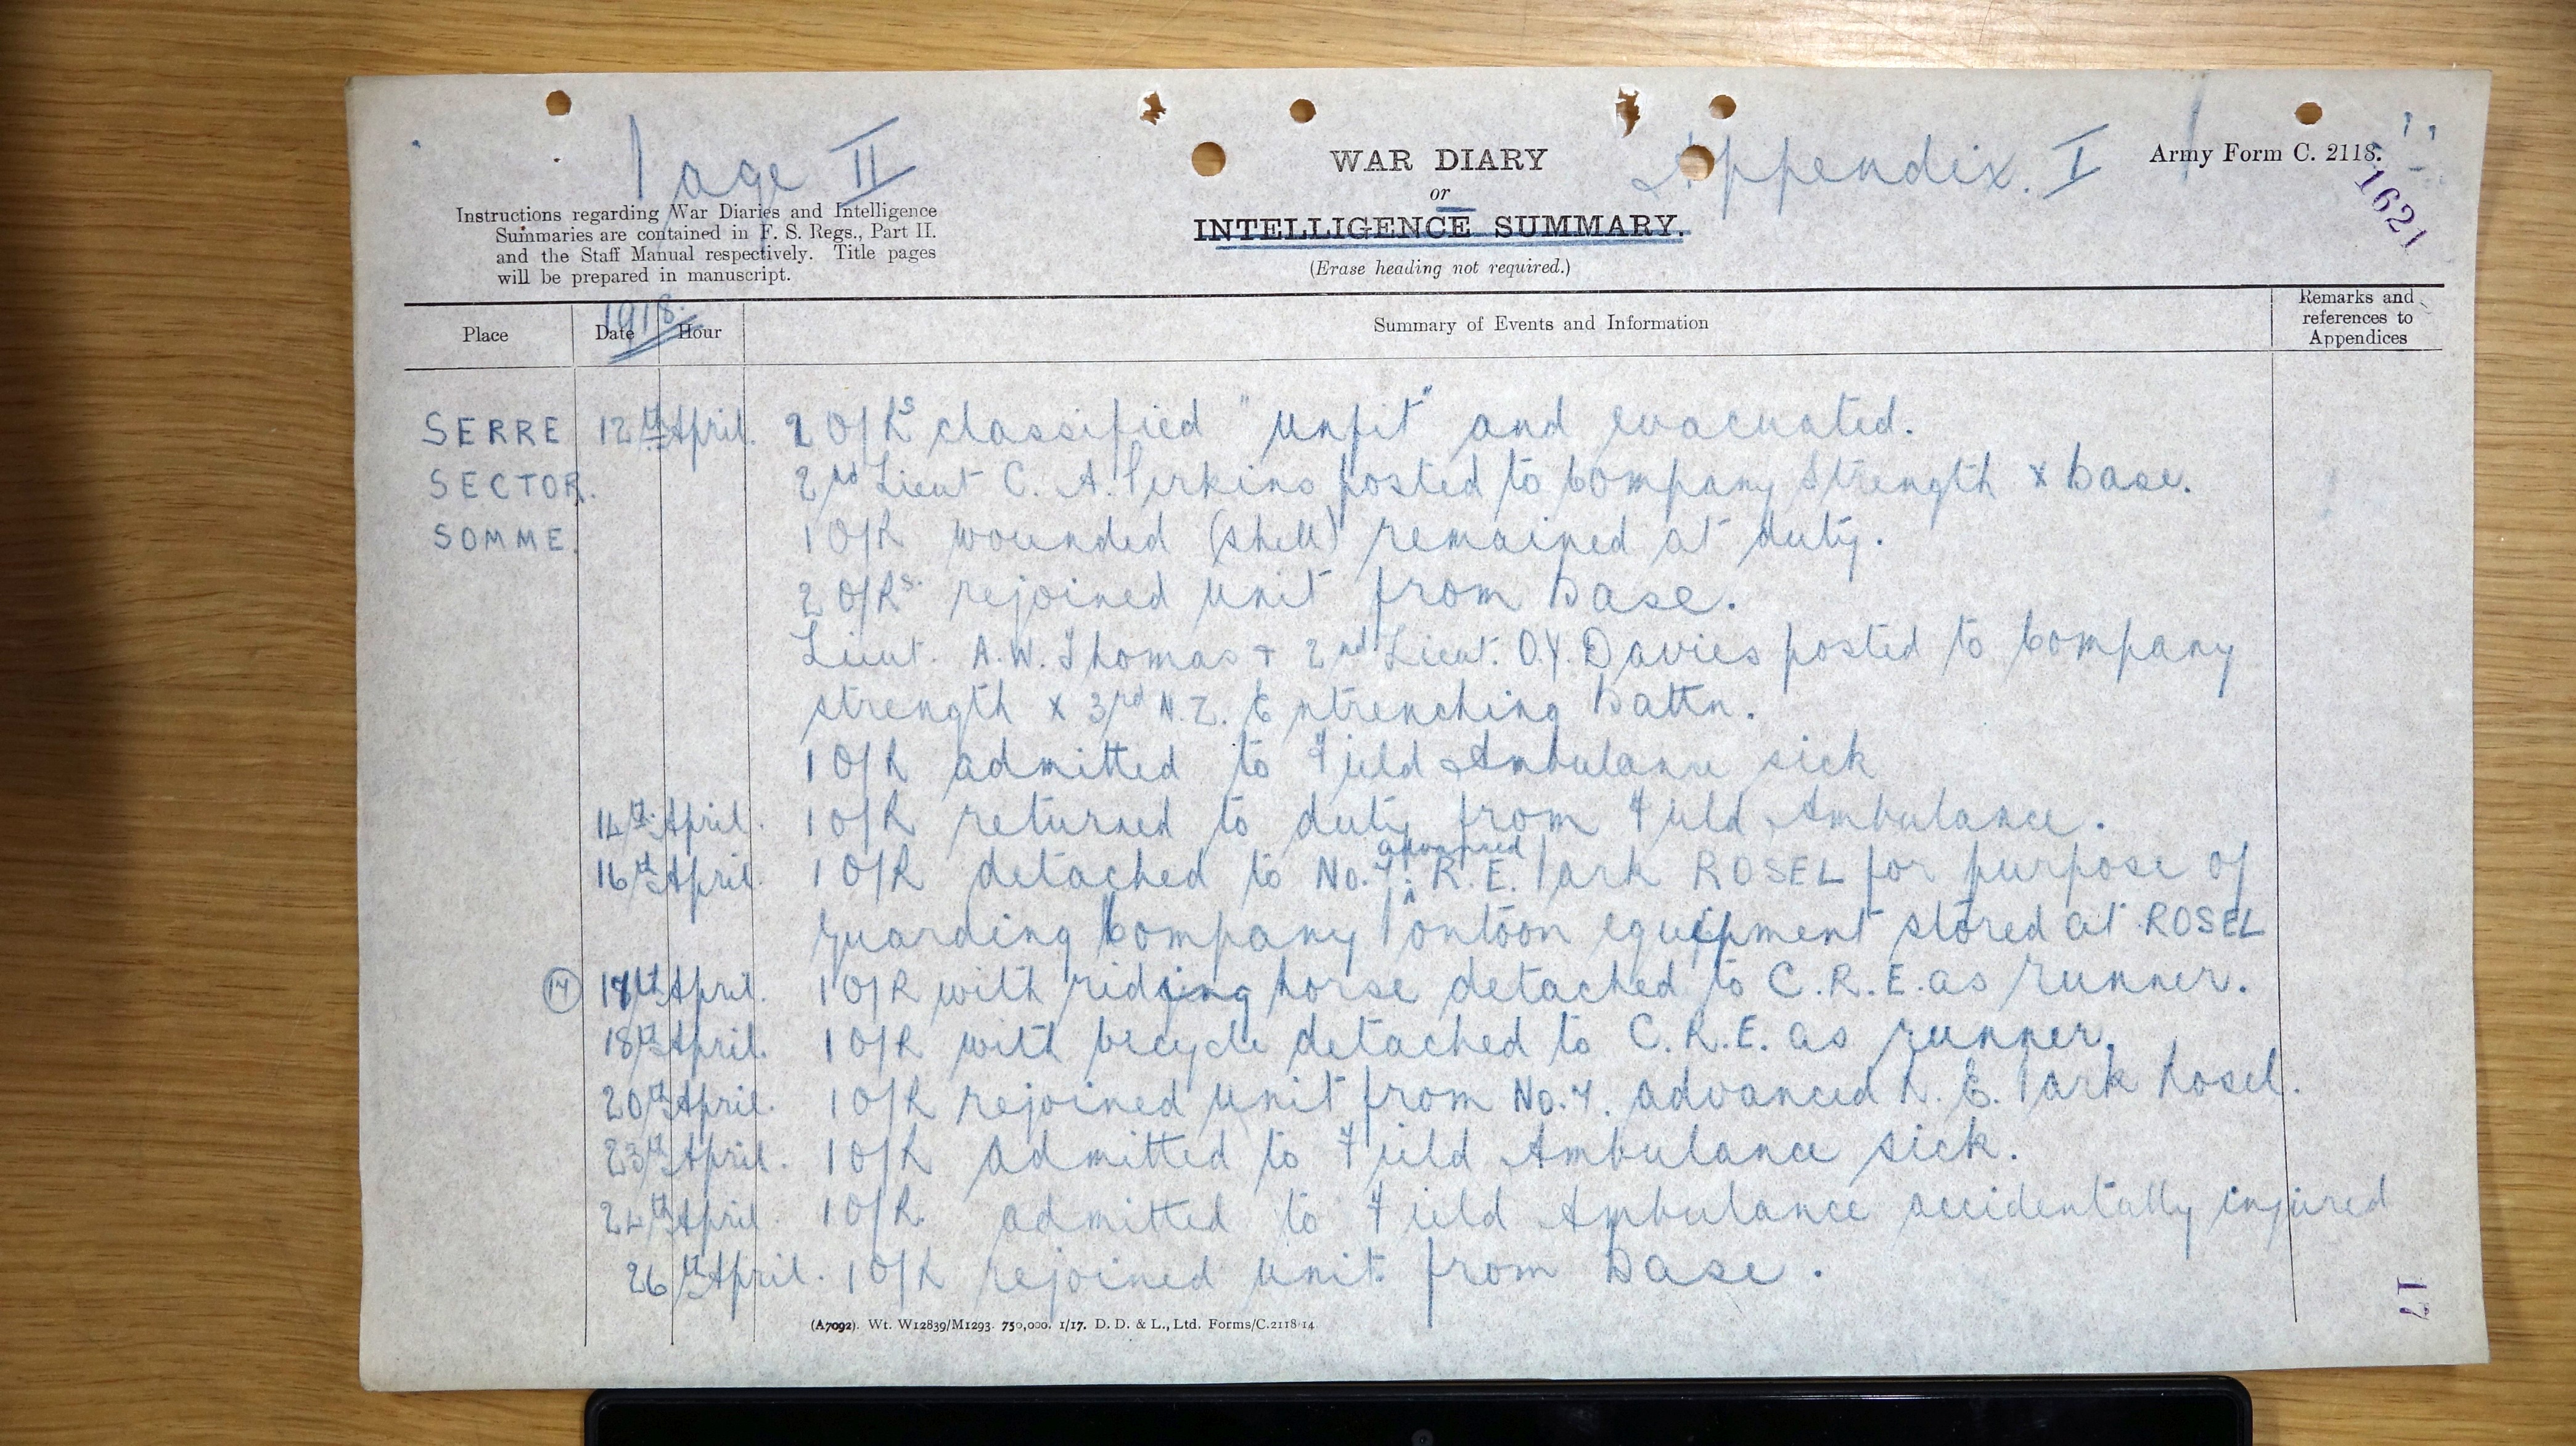 Page II
WAR DIARY
or
INTELLIGENCE SUMMARY.
(Erase heading not required.)
Appendix. I
Army Form C. 2118.
1621
Instructions regarding War Diaries and Intelligence
Summaries are contained in F. S. Regs., Part II.
and the Staff Manual respectively. Title pages
will be prepared in manuscript.
1918.
Place Date Hour Summary of Events and Information Remarks and references to Appendices
SERRE 12th April. 2 O/Rs classified "unfit" and evacuated.
SECTOR. 2nd Lieut C. A. Perkins posted to Company Strength x Base.
SOMME. 1 O/R wounded (shell) remained at duty.
2 O/Rs. rejoined unit from Base.
Lieut. A.W. Thomas + 2nd Lieut. O.Y. Davies posted to Company
strength x 3rd N.Z. Entrenching Battn.
1 O/R admitted to Field Ambulance sick
14th April. 1 O/R returned to duty from Field Ambulance.
16th April. 1 O/R detached to No. 7. advanced R.E. Park ROSEL for purpose of
guarding Company Pontoon equipment stored at ROSEL
(17) 17th April. 1 O/R with riding horse detached to C.R.E. as runner.
18th April. 1 O/R with bicycle detached to C.R.E. as runner.
20th April. 1 O/R rejoined unit from No. 7. advanced R.E. Park Rosel.
23th April. 1 O/R admitted to Field Ambulance sick.
24th April. 1 O/R. admitted to Field Ambulance accidentally injured
26th April. 1 O/R rejoined unit from Base.
17
(A7092). Wt. W12839/M1293. 750,000. 1/17. D. D. & L., Ltd. Forms/C.2118/14